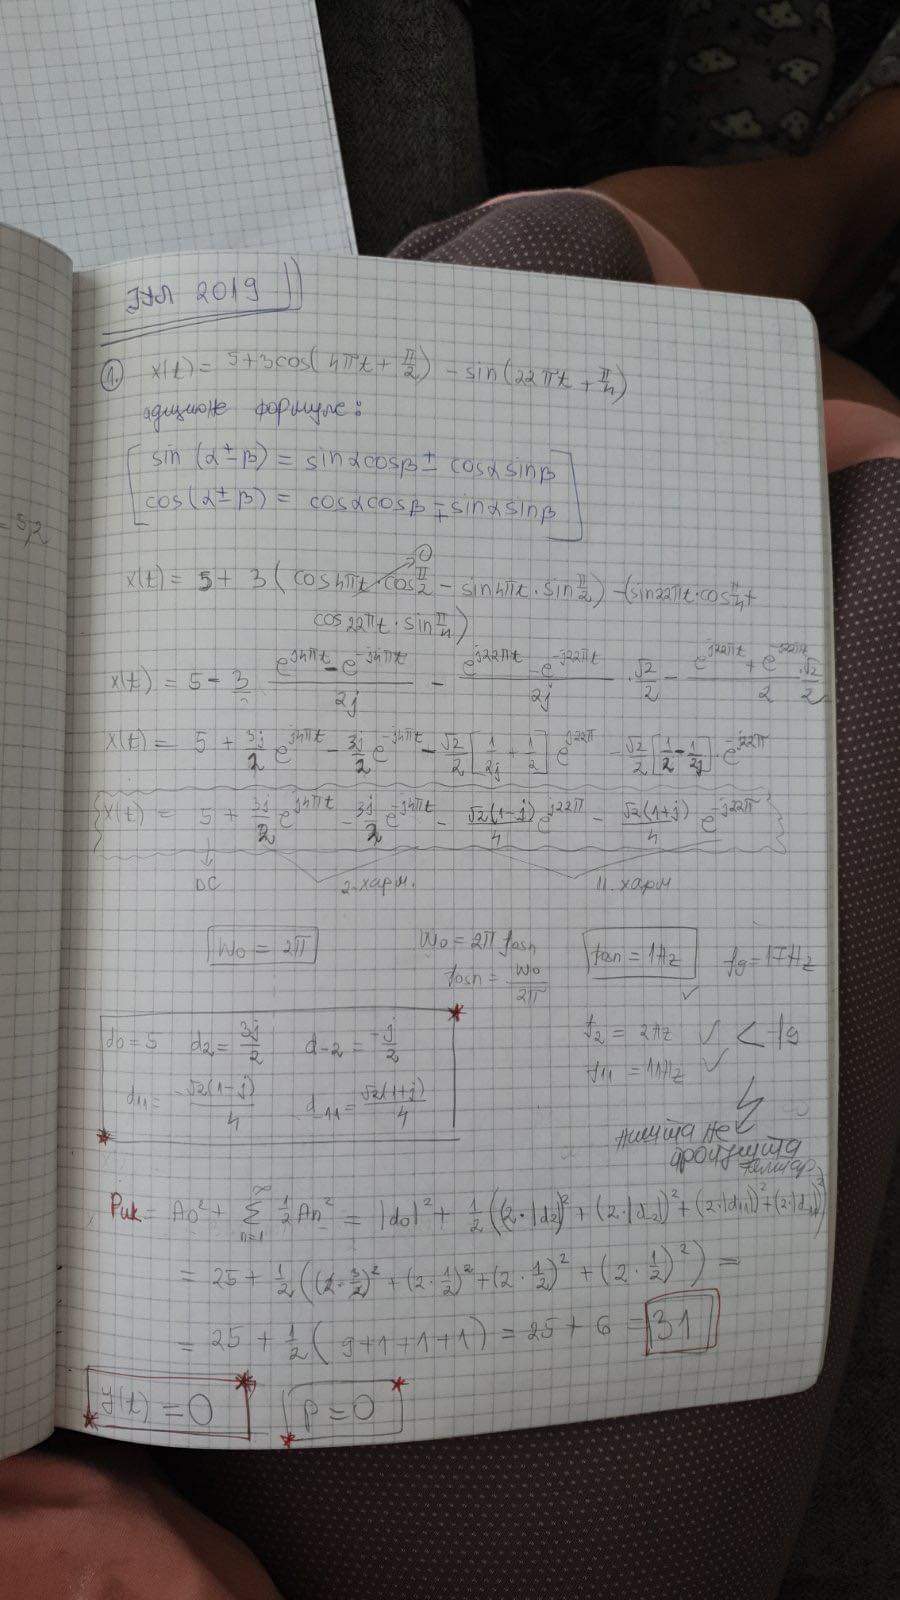 ЈУЛ 2019
1. x(t) = 5+3cos(4πt + π/2) - sin(22πt + π/4)
адиционе формуле:
sin(α±β) = sinαcosβ ± cosαsinβ
cos(α±β) = cosαcosβ ∓ sinαsinβ
= 5,2
0
x(t) = 5 + 3(cos4πt · cos π/2 - sin4πt · sin π/2) - (sin22πt · cos π/4 +
cos22πt · sin π/4)
x(t) = 5 - 3 (e^{j4πt} - e^{-j4πt})/2j - (e^{j22πt} - e^{-j22πt})/2j · √2/2 - (e^{j22πt} + e^{-j22πt})/2 · √2/2
x(t) = 5 + 3j/2 e^{j4πt} - 3j/2 e^{-j4πt} - √2/2 [1/2j + 1/2] e^{j22π} - √2/2 [1/2 - 1/2j] · e^{-j22π}
x(t) = 5 + 3j/2 e^{j4πt} - 3j/2 e^{-j4πt} - √2(1-j)/4 e^{j22π} - √2(1+j)/4 e^{-j22π}
DC 2. харм. 11. харм
ω0 = 2π ω0 = 2π fosn fosn = 1Hz fg = 17Hz
fosn = ω0/2π ✓
d0 = 5 d2 = 3j/2 d-2 = -j/2 f2 = 2Hz ✓ < fg
d11 = -√2(1-j)/4 d-11 = √2(1+j)/4 f11 = 11Hz ✓
ништа не
пропушта
филтар
Puk = A0² + ∑_{n=1}^{∞} 1/2 An² = |d0|² + 1/2((2·|d2|)² + (2·|d-2|)² + (2·|d11|)² + (2·|d-11|)²)
= 25 + 1/2((2·3/2)² + (2·1/2)² + (2·1/2)² + (2·1/2)²) =
= 25 + 1/2(9+1+1+1) = 25 + 6 = 31
y(t) = 0 P = 0